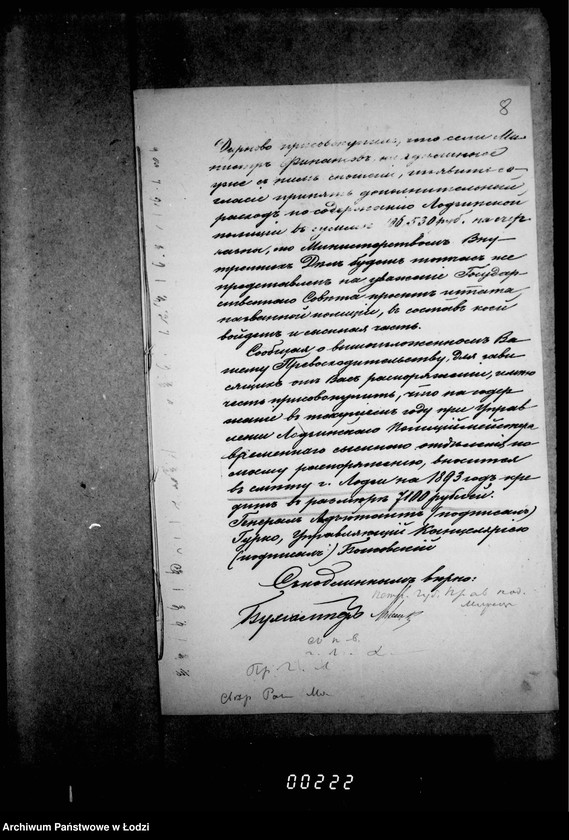 8
Дурново присовокупил, что если Ми-
нистр Финансов, по сделанному
уже с ним сношению, изъявит со-
гласие принять дополнительный
расход по содержанию Лодзинской
полиции в сумме 96.530 руб. на счет
казны, то Министерством Вну-
тренних Дел будет тотчас же
представлен на уважение Государ-
ственного Совета проект штата
названной полиции, в состав коей
войдет и сыскная часть.
Сообщая о вышеизложенном Ва-
шему Превосходительству, для зави-
сящих от Вас распоряжений, имею
честь присовокупить, что на содер-
жание в текущем году при Управ-
лении Лодзинского Полицеймейстера
временного сыскного отделения, по
моему распоряжению, вносится
в смету г. Лодзи на 1893 год кре-
дит в размере 7100 рублей.
Генерал Адъютант (подписал)
Гурко, Управляющий Канцеляриею
(подписал)
С подлинным верно:
Бухгалтер
00222
Archiwum Państwowe w Łodzi